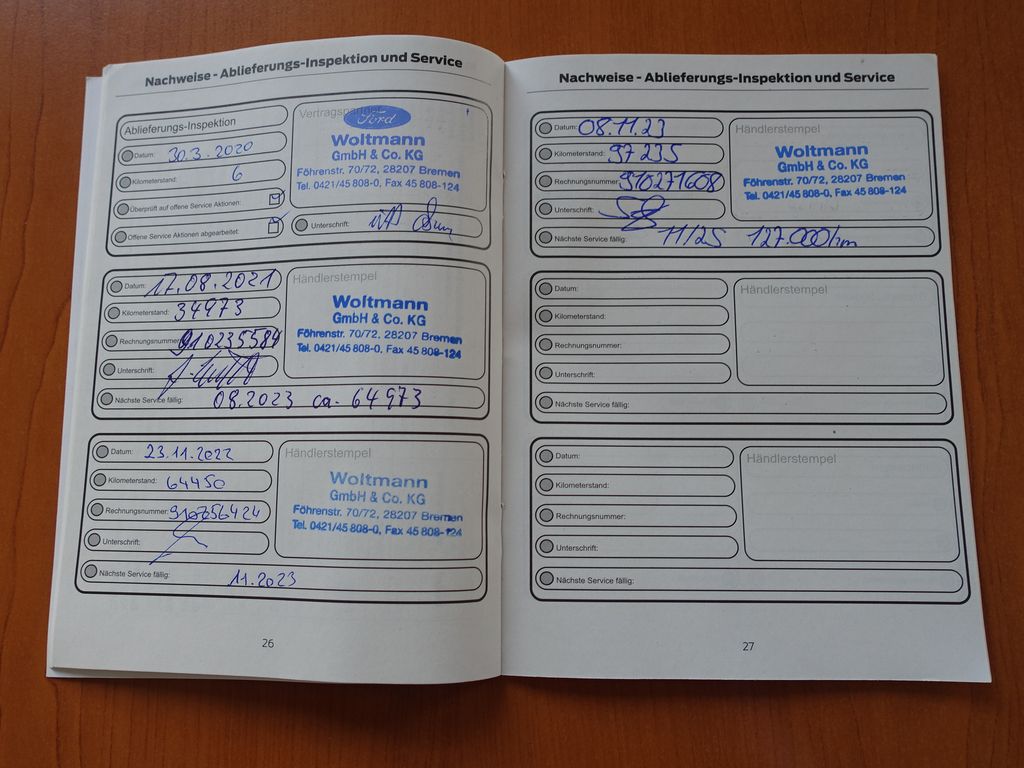 Nachweise - Ablieferungs-Inspektion und Service
Ablieferungs-Inspektion
Datum: 30.3.2020
Kilometerstand: 6
Überprüft auf offene Service Aktionen:
Offene Service Aktionen abgearbeitet:
Vertragspartner
Ford
Woltmann
GmbH & Co. KG
Föhrenstr. 70/72, 28207 Bremen
Tel. 0421/45 808-0, Fax 45 808-124
Unterschrift:
Datum: 17.08.2021
Kilometerstand: 34973
Rechnungsnummer: 910235584
Unterschrift:
Nächste Service fällig: 08.2023 ca. 64973
Händlerstempel
Woltmann
GmbH & Co. KG
Föhrenstr. 70/72, 28207 Bremen
Tel. 0421/45 808-0, Fax 45 808-124
Datum: 23.11.2022
Kilometerstand: 64450
Rechnungsnummer: 910256424
Unterschrift:
Nächste Service fällig: 11.2023
Händlerstempel
Woltmann
GmbH & Co. KG
Föhrenstr. 70/72, 28207 Bremen
Tel. 0421/45 808-0, Fax 45 808-124
26
Nachweise - Ablieferungs-Inspektion und Service
Datum: 08.11.23
Kilometerstand: 97235
Rechnungsnummer: 910271608
Unterschrift:
Nächste Service fällig: 11/25 127.000/km
Händlerstempel
Woltmann
GmbH & Co. KG
Föhrenstr. 70/72, 28207 Bremen
Tel. 0421/45 808-0, Fax 45 808-124
Datum:
Kilometerstand:
Rechnungsnummer:
Unterschrift:
Nächste Service fällig:
Händlerstempel
Datum:
Kilometerstand:
Rechnungsnummer:
Unterschrift:
Nächste Service fällig:
Händlerstempel
27